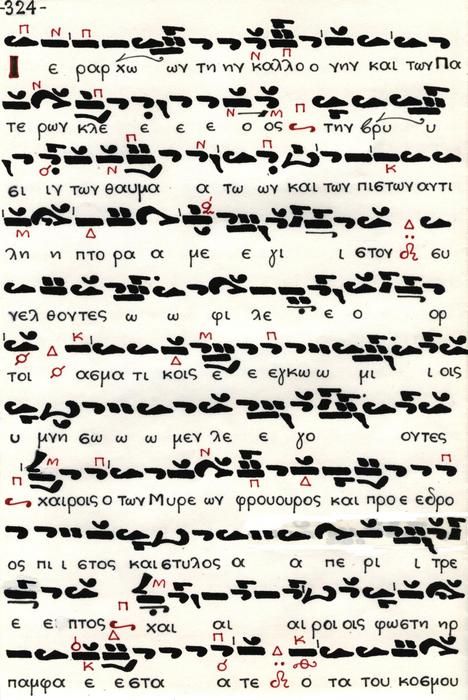 -324-
Ι ε ραρ χω ων τη ην καλλο ο νην και των Πα
τε ρων κλε ε ε ε ο ος την βρυ υ
σι ιν των θαυμα α τω ων και των πιστων αντι
λη η πτο ρα α με ε γι ι στον συ
νελ θοντες ω ω φι λε ε ο ορ
τοι ο ασμα τι κοις ε ε εγκω ω μι ι οις
υ μνη σω ω ω μεν λε ε γο οντες
χαιροις ο των Μυρε ων φρουουρος και προ ε εδρο
ος πι ι στος και στυλος α α πε ρι ι τρε
ε ε πτος χαι αι αι ροι οις φωστη ηρ
παμφα ε ε στα α τε ο τα του κοσμου